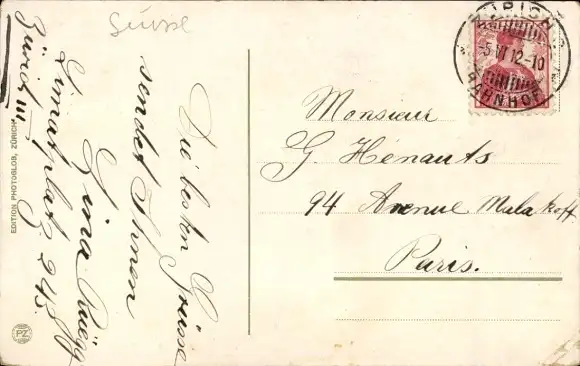 Suisse
ZÜRICH
-5 VI 12-10
BAHNHOF
Die besten Grüsse
sendet Ihnen
Gina Rüegg
Limatplatz
Zürich III
EDITION PHOTOGLOB, ZÜRICH
PZ
Monsieur
G. Hénauts
94 Avenue Malakoff.
Paris.